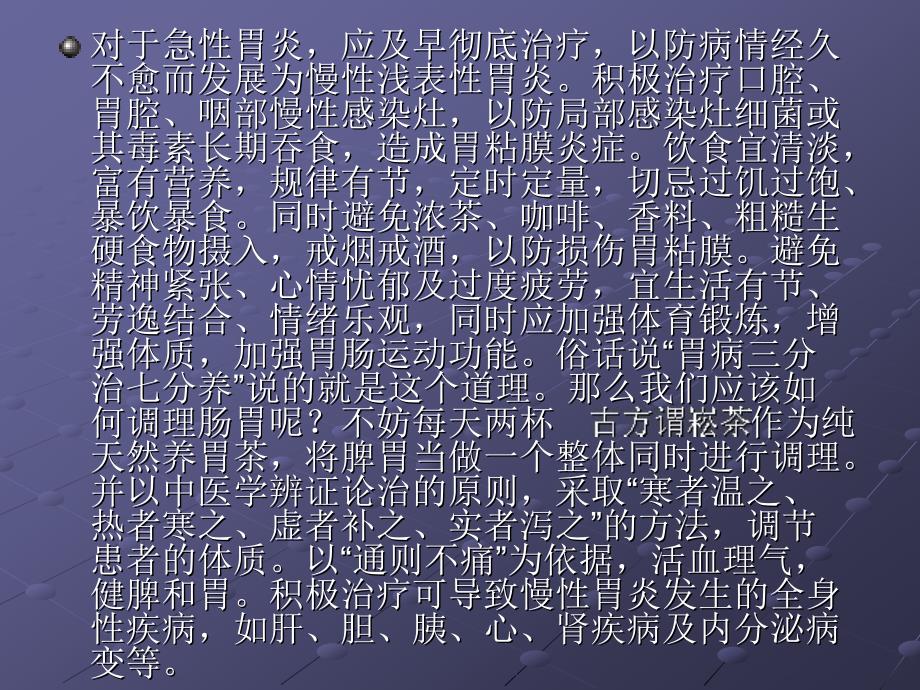 对于急性胃炎，应及早彻底治疗，以防病情经久
不愈而发展为慢性浅表性胃炎。积极治疗口腔、
胃腔、咽部慢性感染灶，以防局部感染灶细菌或
其毒素长期吞食，造成胃粘膜炎症。饮食宜清淡，
富有营养，规律有节，定时定量，切忌过饥过饱、
暴饮暴食。同时避免浓茶、咖啡、香料、粗糙生
硬食物摄入，戒烟戒酒，以防损伤胃粘膜。避免
精神紧张、心情忧郁及过度疲劳，宜生活有节、
劳逸结合、情绪乐观，同时应加强体育锻炼，增
强体质，加强胃肠运动功能。俗话说“胃病三分
治七分养”说的就是这个道理。那么我们应该如
何调理肠胃呢？不妨每天两杯　古方谓崧茶作为纯
天然养胃茶，将脾胃当做一个整体同时进行调理。
并以中医学辨证论治的原则，采取“寒者温之、
热者寒之、虚者补之、实者泻之”的方法，调节
患者的体质。以“通则不痛”为依据，活血理气，
健脾和胃。积极治疗可导致慢性胃炎发生的全身
性疾病，如肝、胆、胰、心、肾疾病及内分泌病
变等。